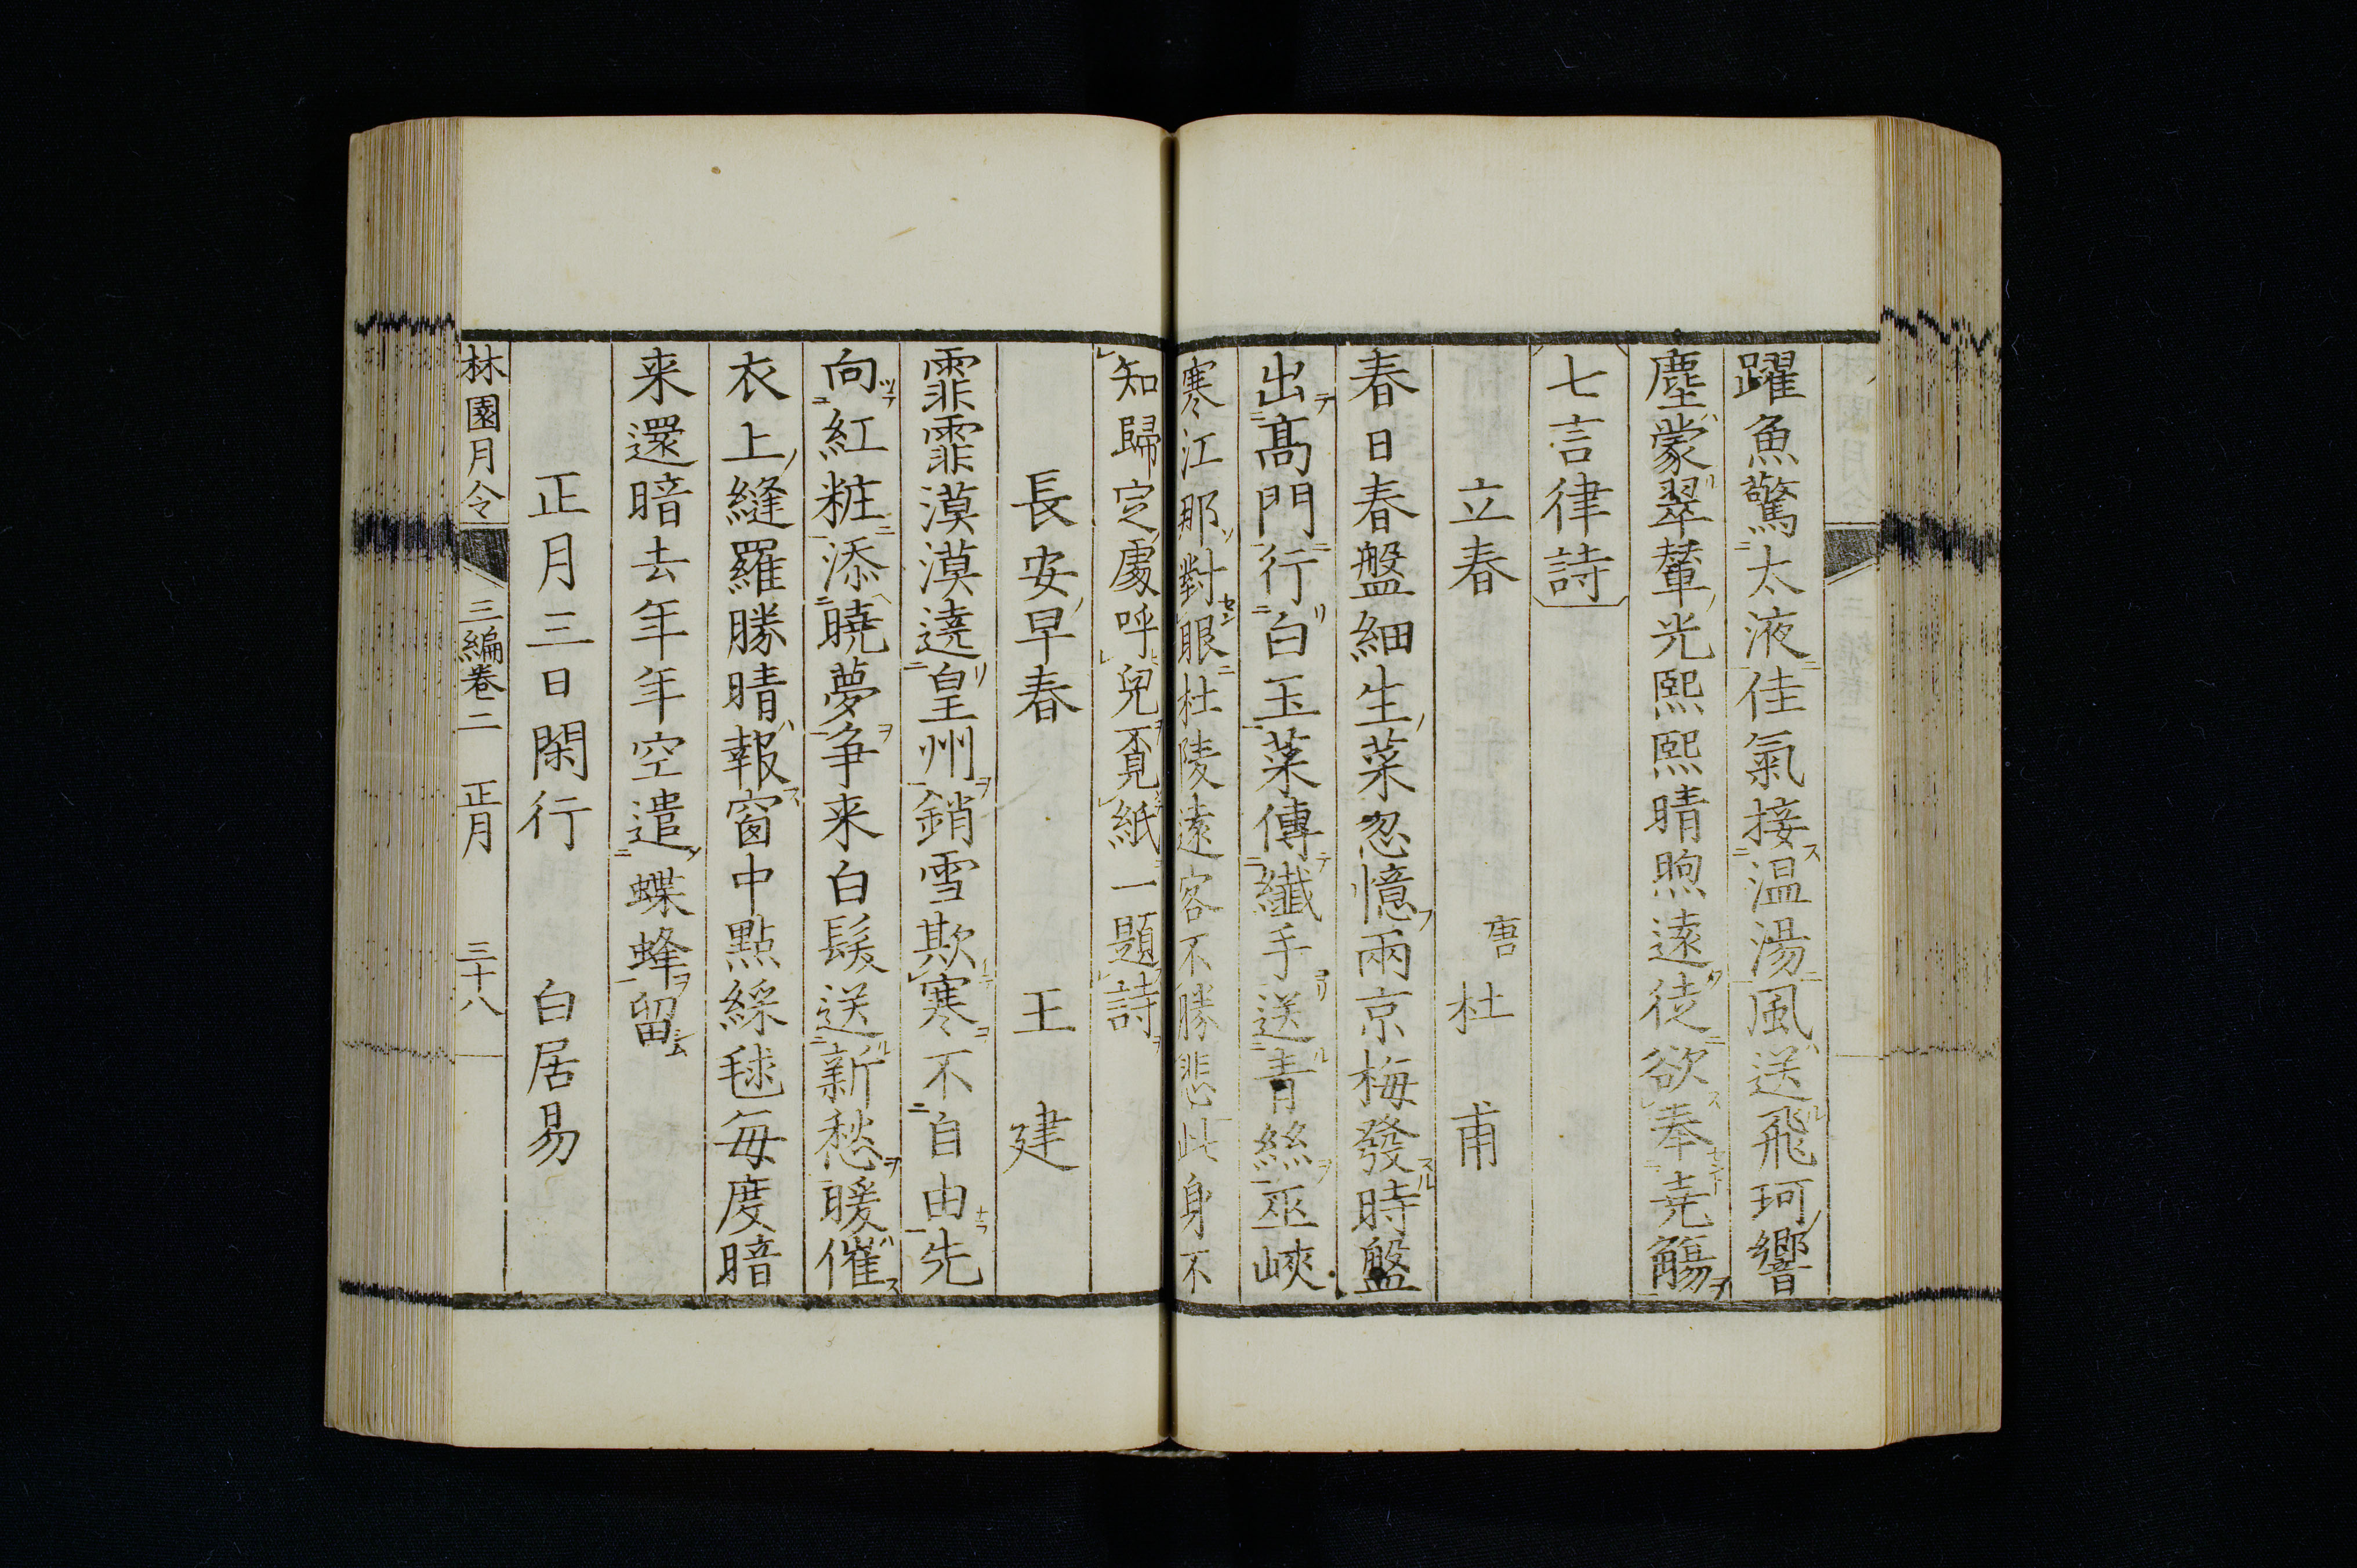 躍魚驚太液佳氣接温湯風送飛珂響
塵蒙翠輦光熙熙晴煦遠徒欲奉堯觴
七言律詩
立春 唐 杜甫
春日春盤細生菜忽憶兩京梅發時盤
出髙門行白玉菜傳纖手送青絲巫峽
寒江那對眼杜陵遠客不勝悲此身不
知歸定處呼兒覓紙一題詩
長安早春 王建
霏霏漠漠遶皇州銷雪欺寒不自由先
向紅粧添曉夢争来白髮送新愁暖催
衣上縫羅勝晴報窗中點綵毬每度暗
来還暗去年年空遣蝶蜂留
正月三日閑行 白居易
林園月令 三編卷二 正月 三十八